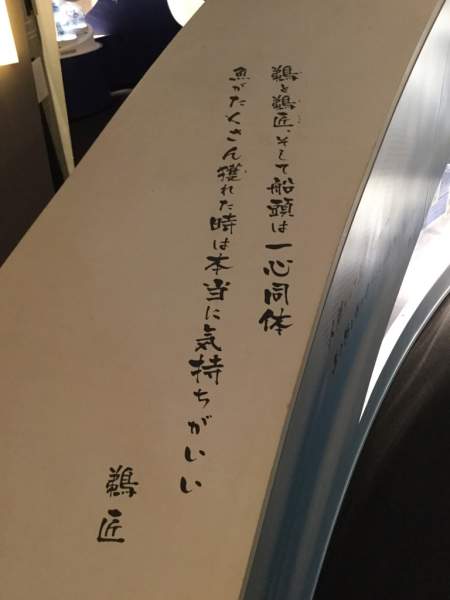 鵜と鵜匠、そして船頭は一心同体
魚がたくさん獲れた時は本当に気持ちがいい
鵜匠